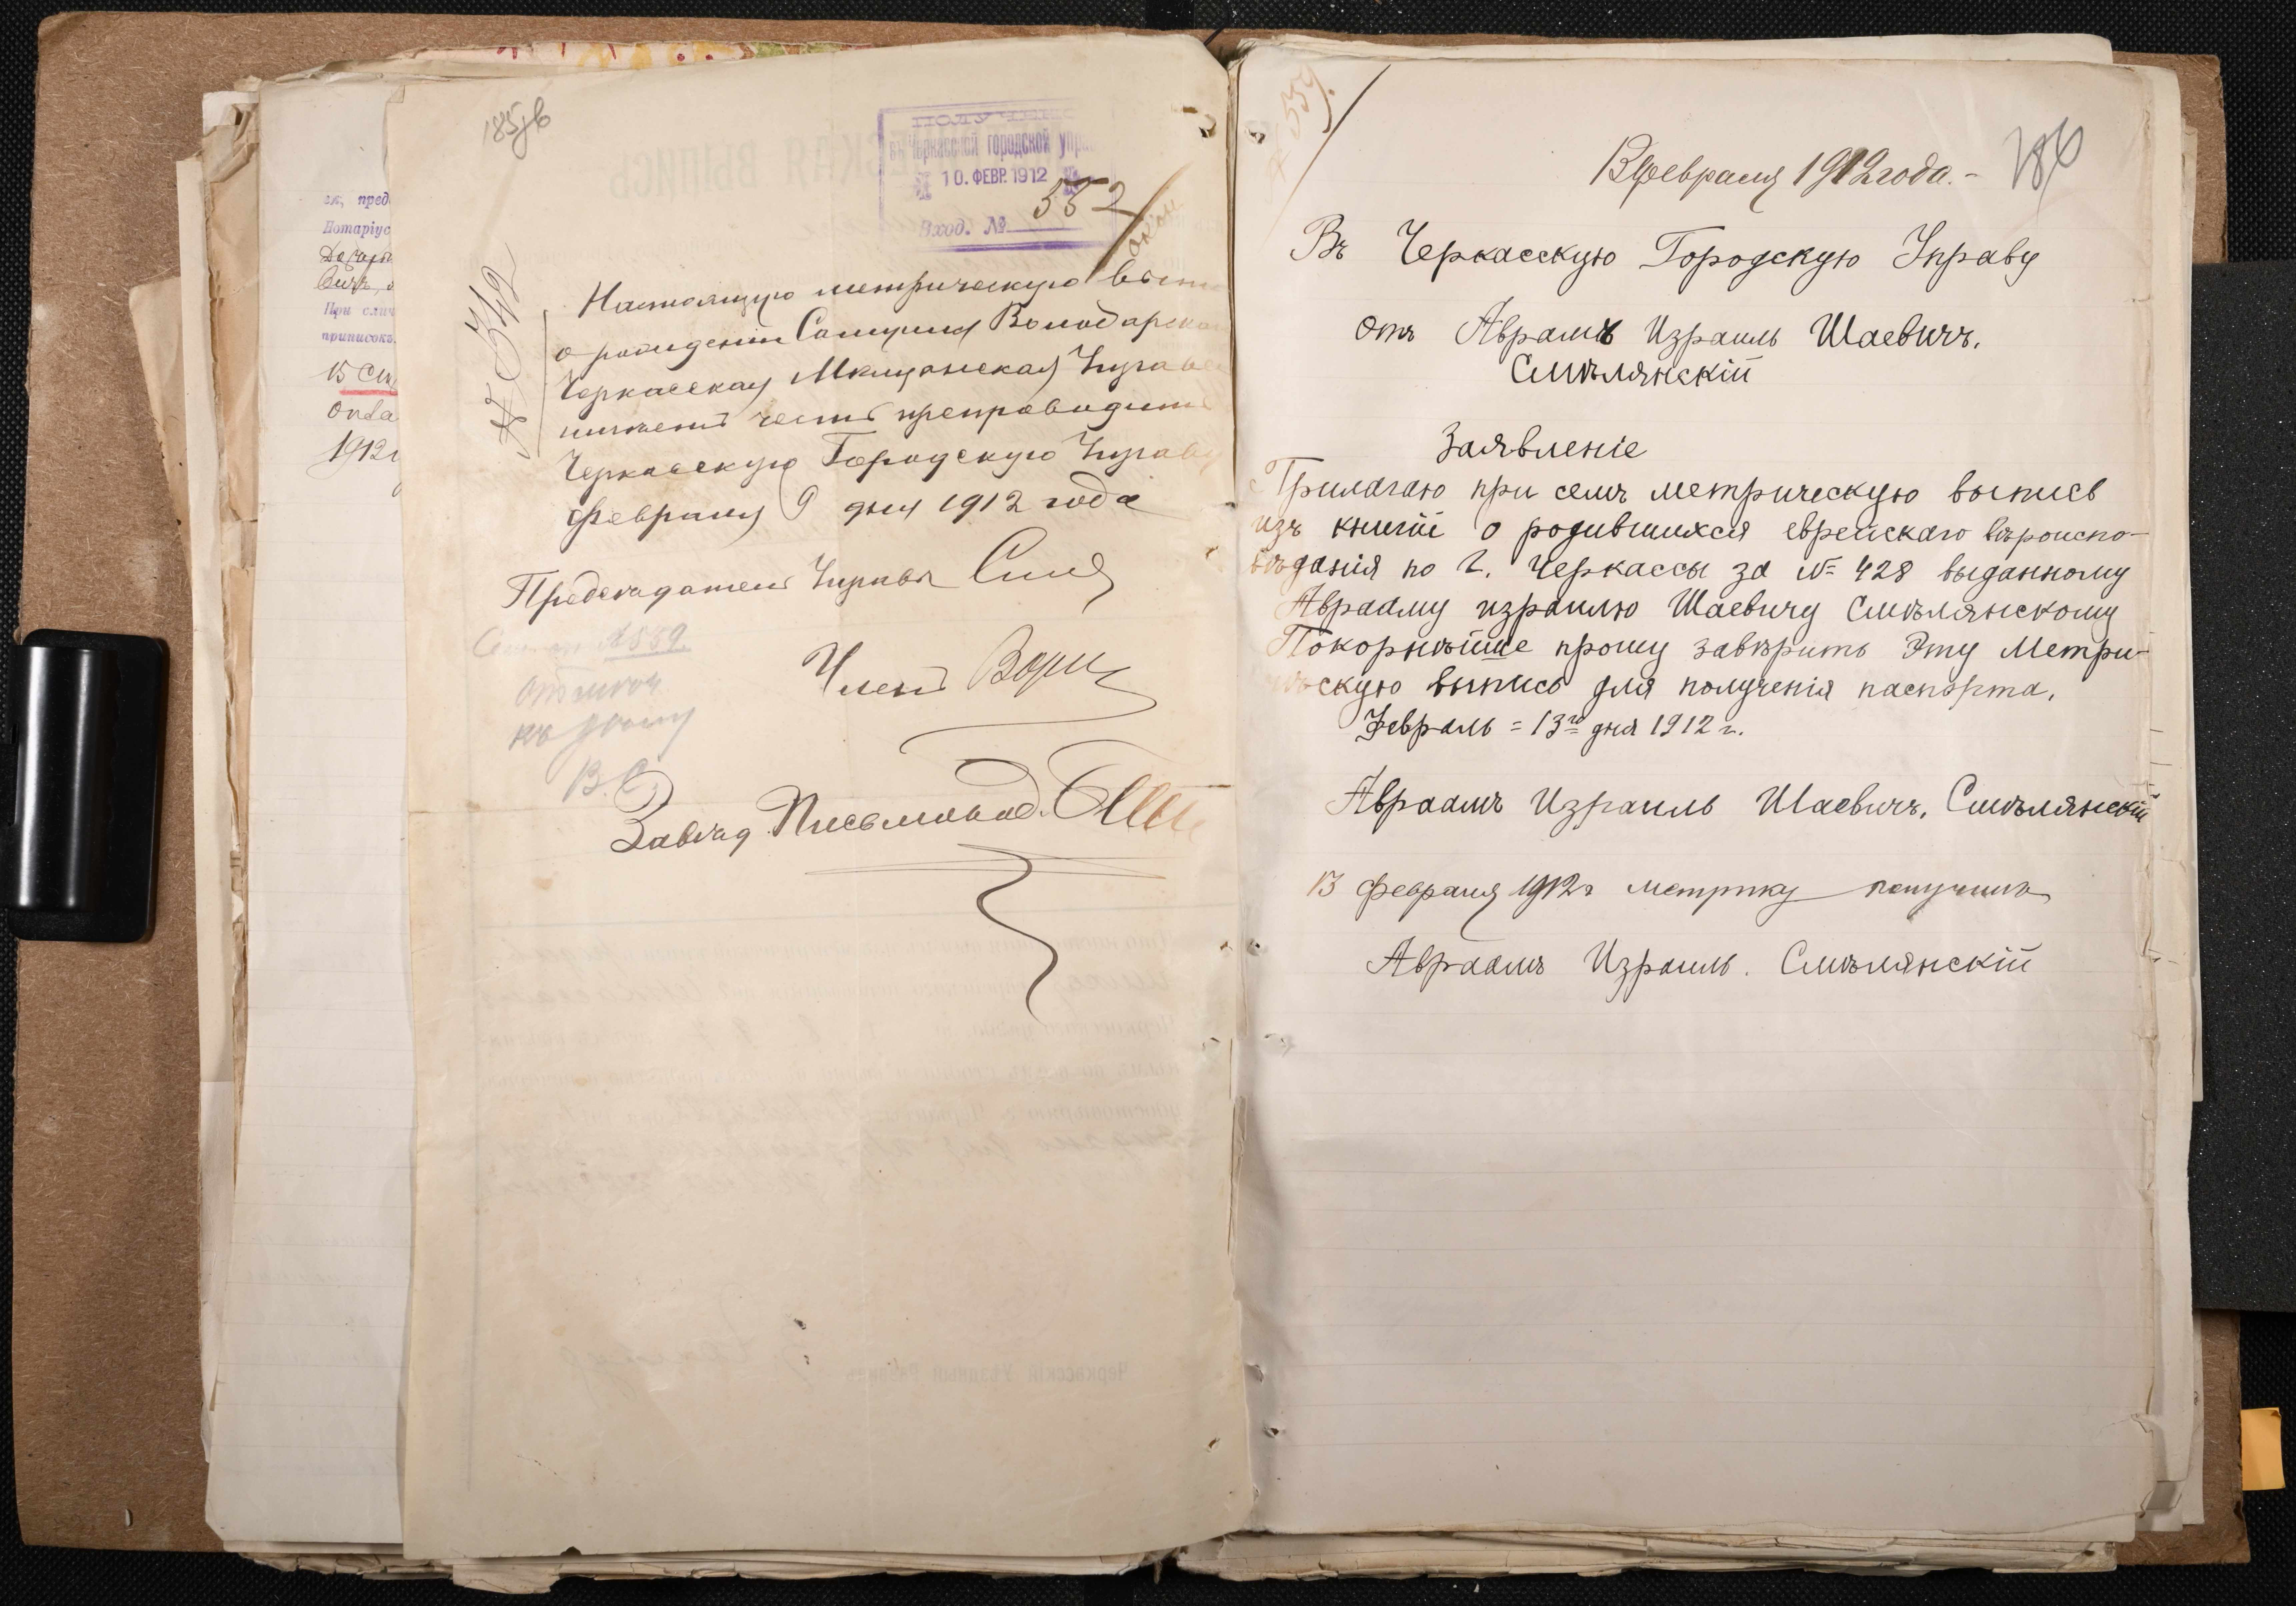 185об
ПОЛУЧЕНО
въ Черкасской городской упра
10. ФЕВР. 1912
Вход. № 552
№ 342
Настоящую метрическую выпи
о рожденіи Самуила Володарска
Черкасская Мѣщанская Управа
имѣетъ честь препроводить
Черкасскую Городскую Управу
Февраля 9 дня 1912 года
Предсѣдатель Управы
№ 559.
къ дѣлу
В. С.
Членъ
Завѣд. Письмовод.
еж, пред
Нотаріус
При слич
приписокъ
15 Сен
1912 г
№ 559.
13 февраля 1912 года. -
186
Въ Черкасскую Городскую Управу
отъ Авраамъ Израиль Шаевичъ.
Смѣлянскій
Заявленіе
Прилагаю при семъ метрическую выпись
изъ книгіи о родившихся еврейскаго вѣроиспо-
вѣданія по г. Черкассы за № 428 выданному
Аврааму израилю Шаевичу Смѣлянскому
Покорнѣйше прошу завѣрить Эту Метри-
ческую выпись для полученія паспорта.
Февраль = 13го дня 1912 г.
Авраамъ Израиль Шаевичъ. Смѣлянскій
13 февраля 1912 г метрику получилъ
Авраамъ Израиль. Смѣлянскій